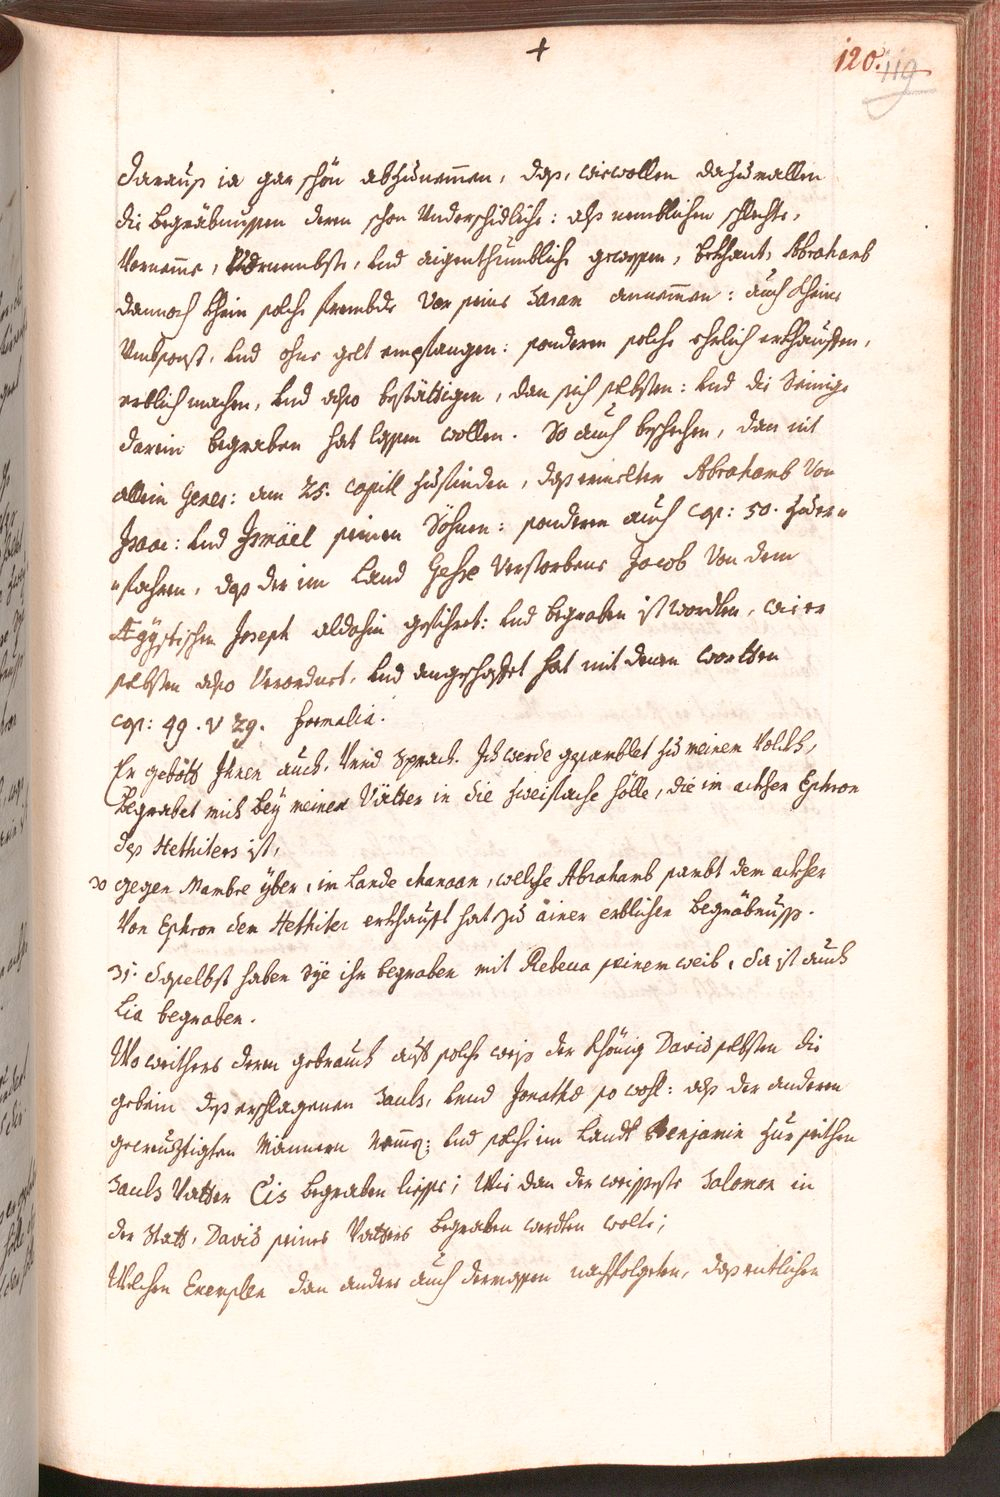 +
120.
119
daraus ja gar schön abzunemmen, das, wiewollen dazumallen
die Begräbnussen deren schon Underschidliche: alß nemblichen schlechte,
Vornemme, Vornembste, Und aigenthumbliche gewessen, bekhant, Abrahamb
dannoch khein solche frembde Vor seine Saram annemmen: auch kheine
Umbsonst, Und ohne gelt empfangen: sonderen solche ehrlich erkhauffen,
erblich machen, Und also bestättigen, dan sich selbsten: Und die Seinige
darein begraben hat lassen wollen. So auch beschehen, dan nit
allein Genes: am 25. capitl zufinden, das ermelter Abrahamb Von
Isaac: Und Ismäel seinen Söhnen: sonderen auch cap: 50. zuder=
=fahren, das der im Land Gesse Verstorbene Jacob Von dem
Ægÿptischen Joseph aldahin gefihret: Und begraben ist worden, wie er
selbsten also Verordnet, Und angeschafft hat mit denen wortten
cap: 49. v 29. formalia.
Er gebott Ihnen auch, Unnd Sprach. Ich werde gesamblet zu meinem Volckh,
Begrabet mich Bey meinen Vätter in die zweifache hölle, die im ackher Ephron
des Hethiters ist,
30 gegen Mambre yber, im Lande Chanaan, welche Abrahamb sambt dem ackher
Von Ephron dem Hethiter erkhaufft hat zu ainer erblichen Begräbnuss.
31. daselbst haben Sÿe ihn begraben mit Rebecca seinem weib, da ist auch
Lia begraben.
Wo weithers deren gebrauch auf solche weis der Khönig David selbsten die
gebein des erschlagenen Sauls, Unnd Jonathæ so wohl: alß der anderen
gecreuztigten Männern nemme; Und solche im Landt Benjamin zur seithen
Sauls Vatter Cis begraben liesse; Wie dan der weisseste Salomon in
der Statt, David seines Vatters begraben werden wolte;
Welchen Exemplen dan andere auch dermassen nachfolgeten, das entlichen